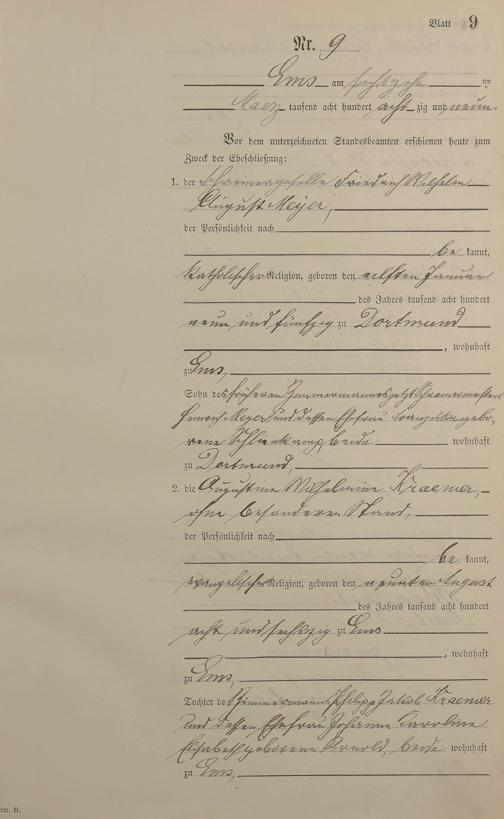 Blatt 9
Nr. 9
Ems am sechszehnten
Maerz tausend acht hundert achtzig und neun
Vor dem unterzeichneten Standesbeamten erschienen heute zum
Zweck der Eheschließung:
1. der Schreinergeselle Friedrich Wilhelm
August Meyer,
der Persönlichkeit nach
be kannt,
katholischer Religion, geboren den elften Januar
des Jahres tausend acht hundert
neun und fünfzig zu Dortmund
, wohnhaft
zu Ems,
Sohn des früheren Zimmermannes jetzt Schreinermeisters
Heinrich Meyer und dessen Ehefrau Franziska gebo-
rene beide wohnhaft
zu Dortmund,
2. die Augustine Wilhelmine Kraemer,
ohne besonderen Stand,
der Persönlichkeit nach
be kannt,
evangelischer Religion, geboren den neunten August
des Jahres tausend acht hundert
acht und sechszig zu Ems
, wohnhaft
zu Ems,
Tochter des Zimmermanns Philipp Jakob Kraemer
und dessen Ehefrau Johanna Karoline
Elisabeth geborene Arnold, beide wohnhaft
zu Ems,